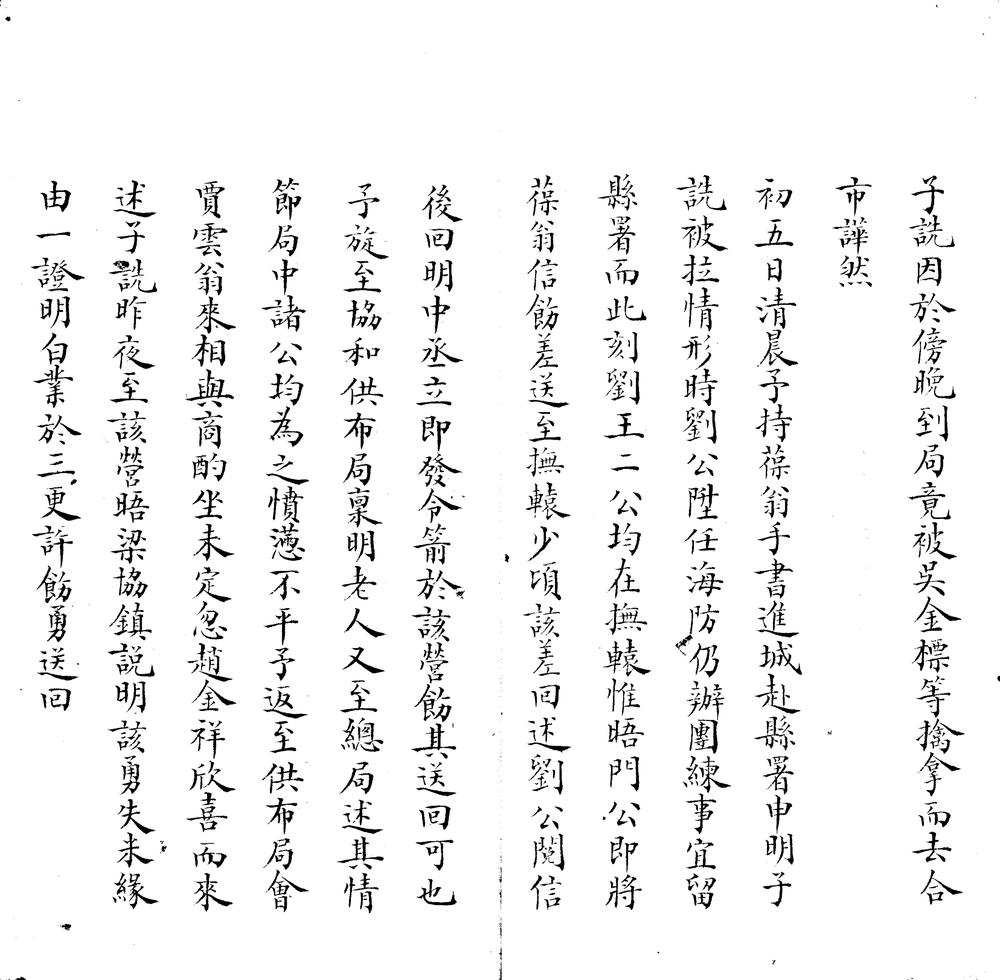 子詵因於傍晚到局竟被吳金標等擒拿而去合
市譁然
初五日清晨予持葆翁手書進城赴縣署申明子
詵被拉情形時劉公陞任海防仍辦團練事宜留
縣署而此刻劉王二公均在撫轅惟晤門公即將
葆翁信飭差送至撫轅少頃該差回述劉公閱信
後回明中丞立即發令箭於該營飭其送回可也
予旋至協和供布局稟明老人又至總局述其情
節局中諸公均為之憤懣不平予返至供布局會
賈雲翁來相與商酌坐未定忽趙金祥欣喜而來
述子詵昨夜至該營晤梁協鎮説明該勇失未緣
由一證明白業於三更許飭勇送回